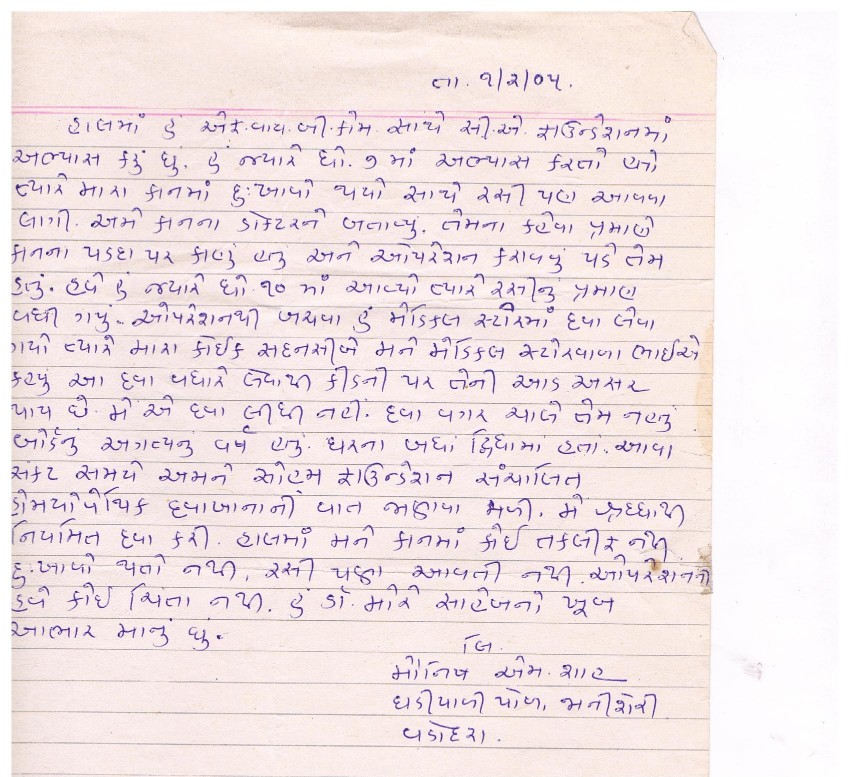 તા. ૧/૨/૦૫.
હાલમાં હું એફ.વાય.બી.કોમ. સાથે સી.એ. ફાઉન્ડેશનમાં
અભ્યાસ કરું છું. હું જ્યારે ધો. ૭ માં અભ્યાસ કરતો હતો
ત્યારે મારા કાનમાં દુઃખાવો થયો સાથે રસી પણ આવવા
લાગી. અમે કાનના ડોક્ટરને બતાવ્યું. તેમના કહેવા પ્રમાણે
કાનના પડદા પર કાણું હતું અને ઓપરેશન કરાવવું પડે તેમ
હતું. હવે હું જ્યારે ધો. ૧૦ માં આવ્યો ત્યારે રસીનું પ્રમાણ
વધી ગયું. ઓપરેશનથી બચવા હું મેડિકલ સ્ટોરમાં દવા લેવા
ગયો ત્યારે મારા કોઈક સદનસીબે મને મેડિકલ સ્ટોરવાળા ભાઈએ
કહ્યું આ દવા વધારે લેવાથી કીડની પર તેની આડ અસર
થાય છે. મેં એ દવા લીધી નહીં. દવા વગર ચાલે તેમ નહતું
બોર્ડનું અગત્યનું વર્ષ હતું. ઘરના બધાં દ્વિધામાં હતાં. આવા
સંકટ સમયે અમને સોહમ ફાઉન્ડેશન સંચાલિત
હોમયોપેથિક દવાખાનાની વાત જાણવા મળી. મેં શ્રધ્ધાથી
નિયમિત દવા કરી. હાલમાં મને કાનમાં કોઈ તકલીફ નથી
દુઃખાવો થતો નથી, રસી પણ આવતી નથી. ઓપરેશનની
હવે કોઈ ચિંતા નથી. હું ડૉ. મોરે સાહેબનો ખૂબ
આભાર માનું છું.
લિ.
મોનિષ એમ. શાહ
ઘડીયાળી પોળ, જાની શેરી
વડોદરા.